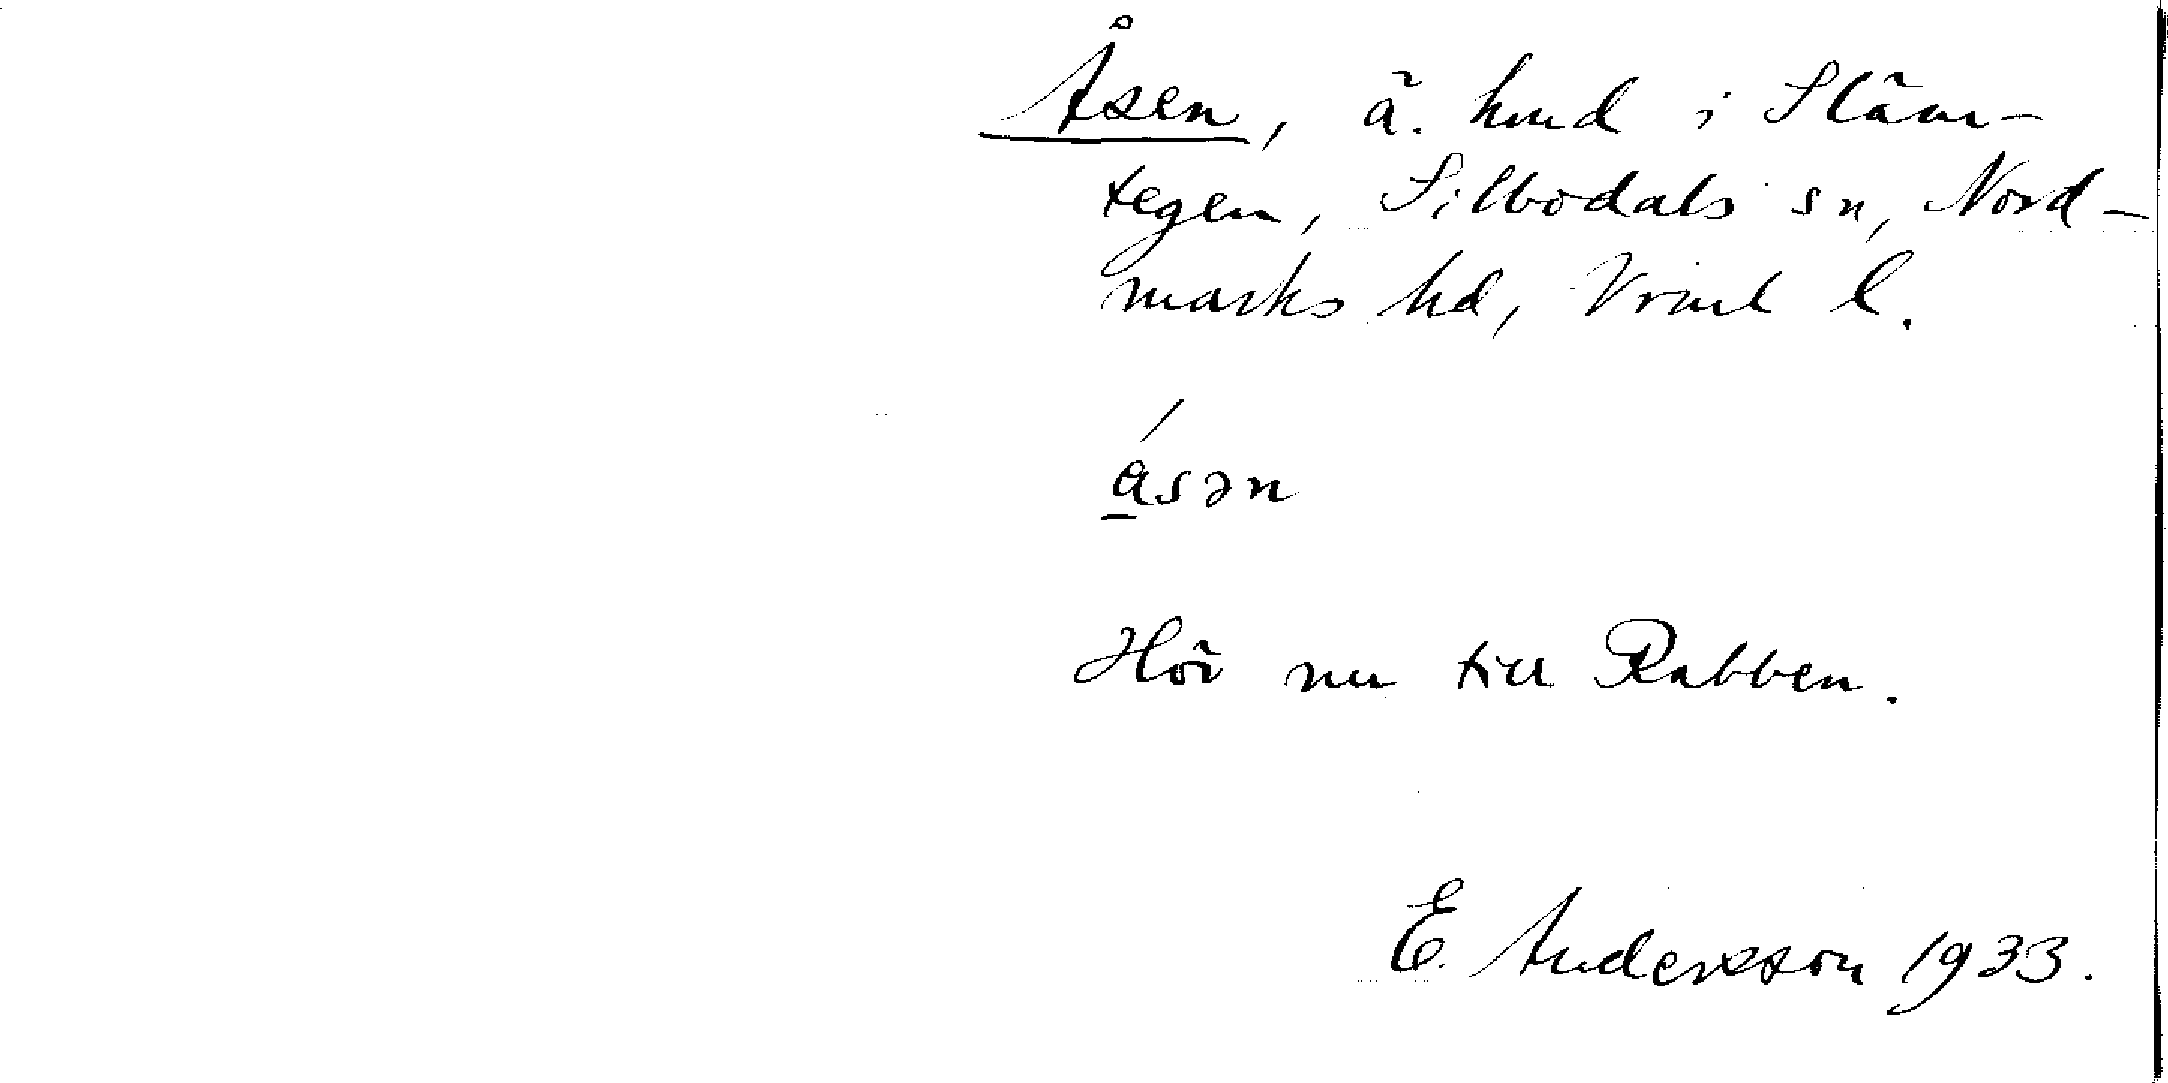 Åsen, ä. hmd i Släm-
tegen, Silbodals sn, Nord-
marks hd, Vrml l.
åsən
Hör nu till Rabben.
E. Andersson 1933.